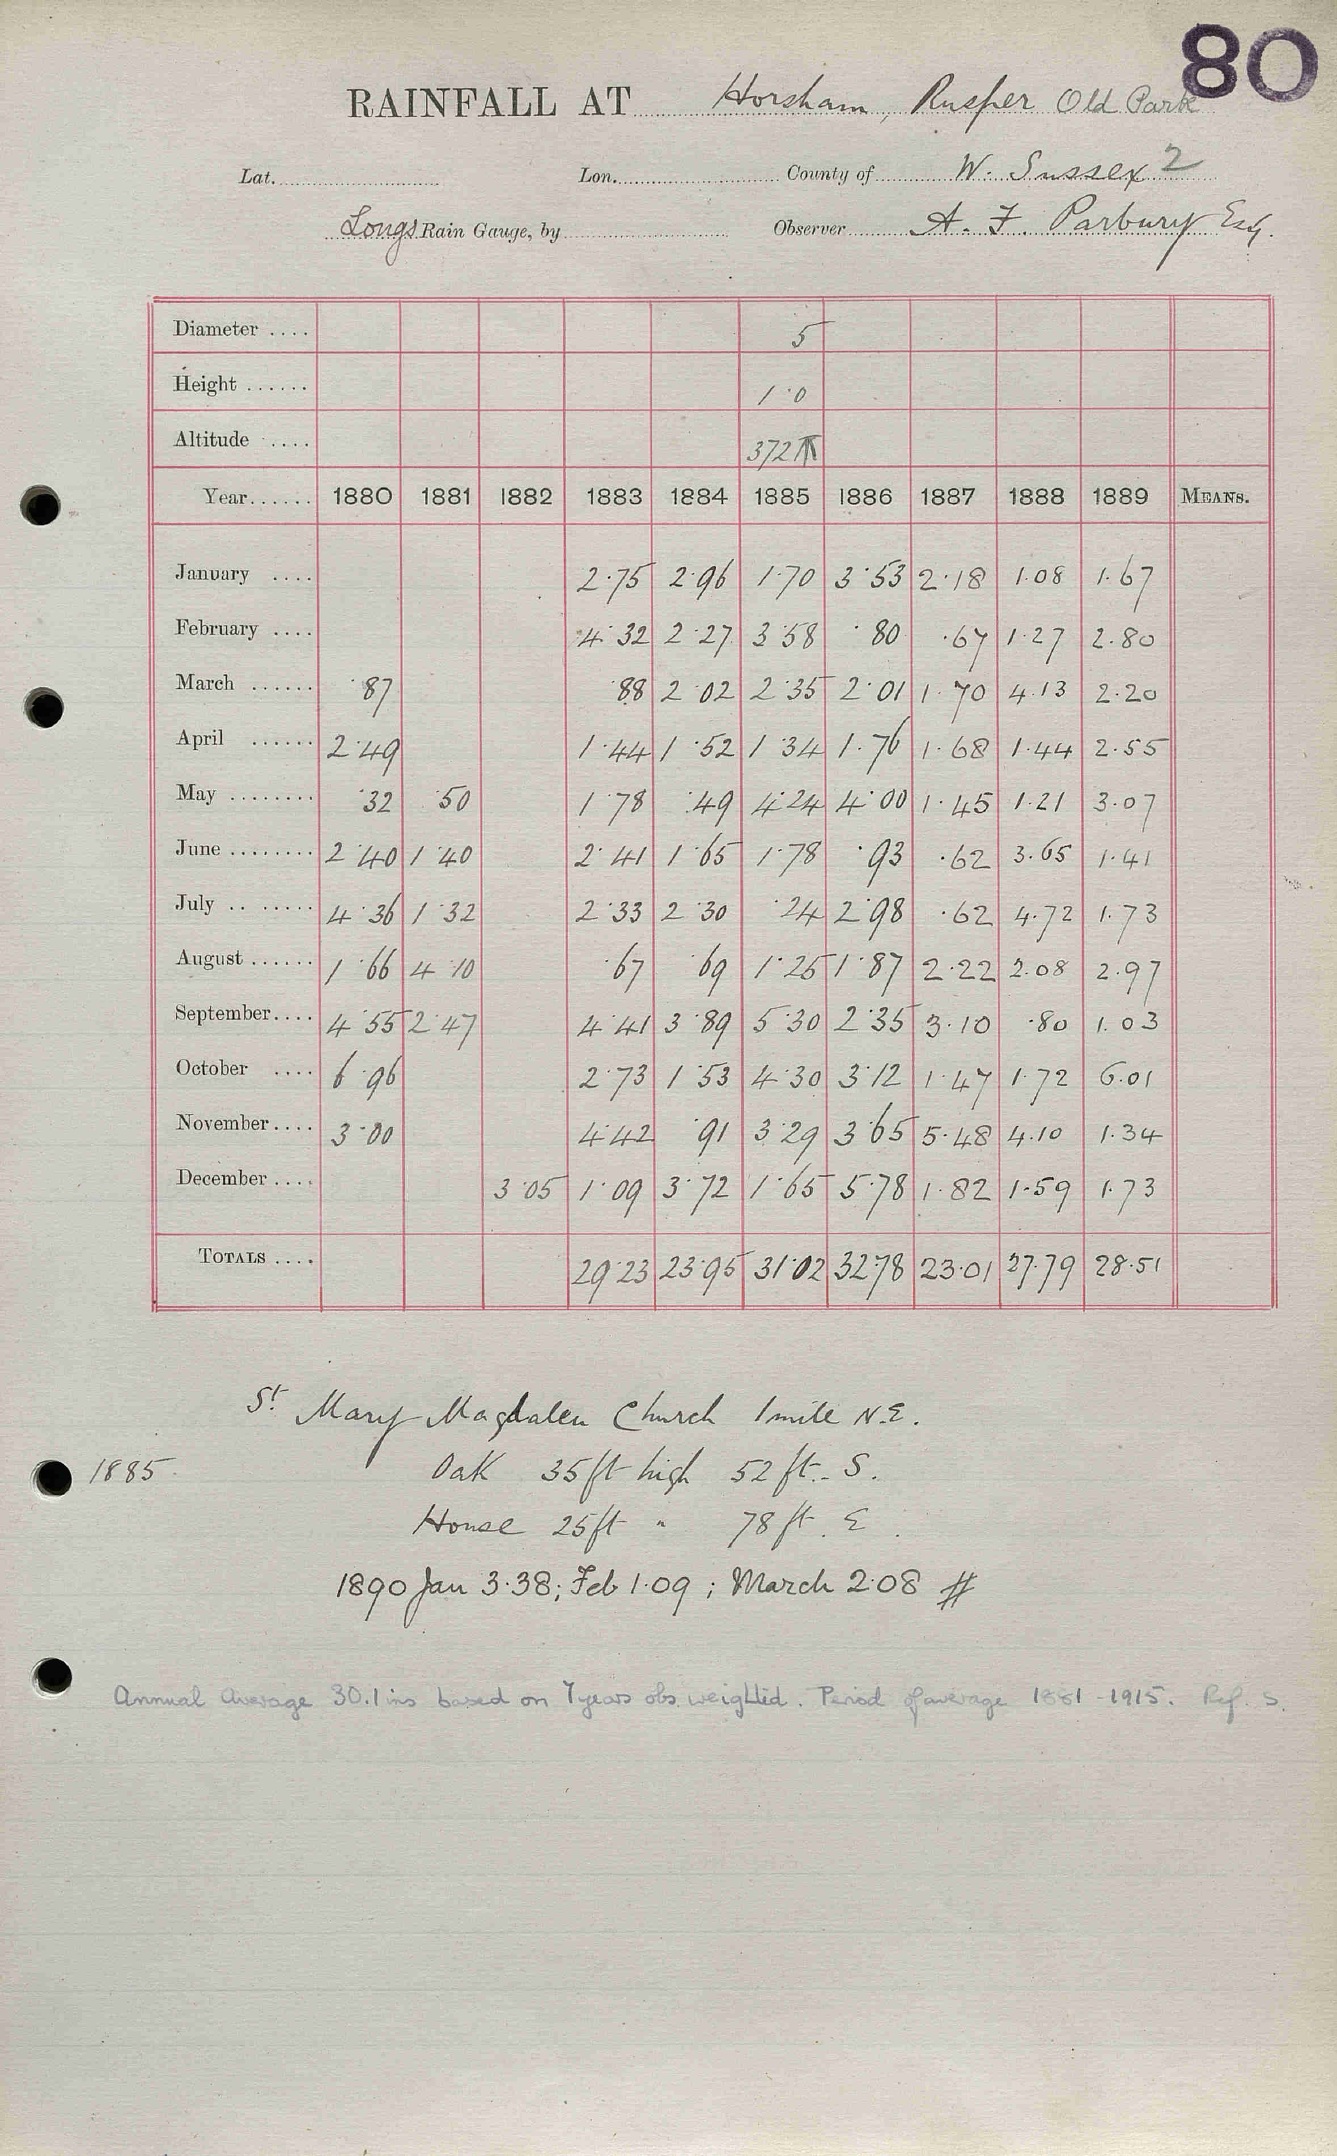 80
RAINFALL AT Horsham, Rusper Old Park
Lat. Lon. County of W. Sussex 2
Longs Rain Gauge, by Observer A. F. Parbury Esq.
Diameter .... 5
Height ...... 1·0
Altitude .... 372
Year...... 1880 1881 1882 1883 1884 1885 1886 1887 1888 1889 MEANS.
January .... 2·75 2·96 1·70 3·53 2·18 1·08 1·67
February .... 4·32 2·27 3·58 ·80 ·67 1·27 2·80
March ...... ·87 ·88 2·02 2·35 2·01 1·70 4·13 2·20
April ...... 2·49 1·44 1·52 1·34 1·76 1·68 1·44 2·55
May ........ ·32 ·50 1·78 ·49 4·24 4·00 1·45 1·21 3·07
June ........ 2·40 1·40 2·41 1·65 1·78 ·93 ·62 3·65 1·41
July .. ...... 4·36 1·32 2·33 2·30 ·24 2·98 ·62 4·72 1·73
August ...... 1·66 4·10 ·67 ·69 1·25 1·87 2·22 2·08 2·97
September.... 4·55 2·47 4·41 3·89 5·30 2·35 3·10 ·80 1·03
October .... 6·96 2·73 1·53 4·30 3·12 1·47 1·72 6·01
November.... 3·00 4·42 ·91 3·29 3·65 5·48 4·10 1·34
December.... 3·05 1·09 3·72 1·65 5·78 1·82 1·59 1·73
TOTALS .... 29·23 23·95 31·02 32·78 23·01 27·79 28·51
St. Mary Magdalen Church 1 mile N.E.
1885 Oak 35 ft high 52 ft. S.
House 25 ft " 78 ft. E.
1890 Jan 3·38; Feb 1·09; March 2·08 #
Annual Average 30.1 ins based on 7 years obs. weighted. Period of average 1881-1915. Ref. S.